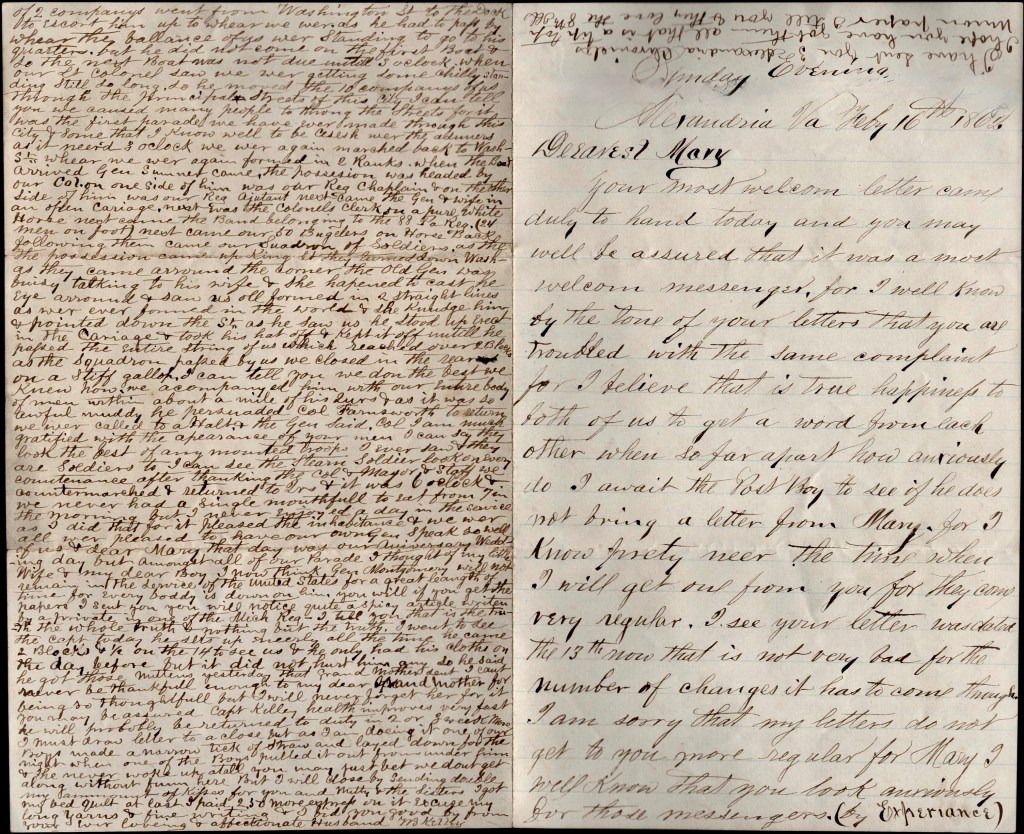 of 2 companys went from Washington St to the Boat
to escort him up to whear we wer as he had to pass by
whear the ballance of us wer standing to go to his
quarters. but he did not come on the first Boat &
so the next Boat was not due untill 3 oclock. when
our Lt Colonel saw we wer getting some chilly stan-
ding still so long. so he moved the 10 companys of us
through the Principal streets of this City I can tell
you we caused many People to throng the Streets for it
was the first parade we have ever made through this
City & some that I know well to be Cesesh wer the
as it neerd 3 oclock we wer again marched back to Wash-
St. whear we wer again formed in 2 Ranks. when the Boat
arrived Gen Sumner came, the possesion was headed by
our Col. on one side of him was our Reg Chaplain & on the other
side of him was our Reg Ajutant next came the Gen & wife in
an open Cariage, next was the Colonels Clerk on a pure White
Horse next came the Band belonging to the 88 Pa Reg. (24
men on foot) next came our 50 Buglers on Horse Back.
following them came our Squadron of Soldiers. as the
the possession came up King St they turned down Wash-
as they came arround the corner the Old Gen was
buisy talking to his wife & she hapened to cast he
Eye arround & saw us all formed in 2 straight lines
as wer ever formed in the world & she knudge him
& pointed down the St. as he saw us he stood up Erect
in the Cariage & took his hat off & kept it off untill he
passed the entere string of us which reached over 2 Blocks
as the Squadron passed by us we closed in the rear
on a stiff gallop. I can tell you we don the best we
knew how. we acompanyed him with our entire body
of men within about a mile of his 2urs & as it was so
lawful muddy he persuaded Col Farnsworth to return
we wer called to a Halt. & the Gen said, Col I am much
gratified with the apearance of your men I can say they
look the best of any mounted troops I ever saw & they
are Soldiers to I can see the Steam Soldiers look on every
countenance after thanking the Col & Mayor & Staff we
countermarched & returned to 2rs & it was 6 oclock &
we never had a single mouthfull to eat from Ten in
the morning but I never enjoyed a day in the service
as I did that for it pleased the inhabitance & we wer
all wer pleased to have our own Gen Speak so well
of us & dear Mary that day was our Aniversary Wedd-
ing day but Amongst all of our Parade I thought of my little
Wife & my dear Boy. I now think Gen Montgomery will not
remain in the service of the United States for a great leangth of
time for every boddy is down on him you will if you get the
papers I sent you you will notice quite a spicy article writen
by a private in one of the Mich Reg- I tell you that man tru-
th the whole truth & nothing but the truth, I went to see
the Capt today he sits up neerly all the time he came
2 Blocks & ½ on the 14 to see us & he only had his cloths on
the day before but it did not hurt him any so he said.
he got those Mittens yesterday that Grand Mother sent I cant
never be thankfull enough to my dear Grand mother for
being so thoughtfull but I will never forget her for it
you may be assured Capt Kelley health improves very fast
he will probobly be returned to duty in 2 or 3 weeks more
I must draw letter to a close but as I am doeing it one of our
Boys made a narrow tick of straw and layed down for the
night when one of the Boys pulled it out from under him
& he never woke up atall you may just bet we dout get
along without fun here But I will close by sending double
my ammount of Kisses for you and Nutty & the Sisters I got
my bed Quilt at last I paid 2,50 more express on it Excuse my
long yarns & fine writing & I bid you good by from
your ever loveing & affectionate Husband WB Kelley
I have sent you 3 Alexandria Chronicles
I hope you have got them all that is a tip top
union paper I tell you & they love the 8th Ill
Sunday Evening
Alexandria Va Feby 16th 1862
Dearest Mary
Your most welcom letter came
duly to hand today and you may
well be assured that it was a most
welcom messenger. for I well know
by the tone of your letters that you are
troubled with the same complaint
for I believe that is true happiness to
both of us to get a word from each
other when so far apart how anxiously
do I await the Post Boy to see if he does
not bring a letter from Mary. for I
know prety neer the time when
I will get one from you for they come
very regular. I see your letter was dated
the 13th now that is not very bad for the
number of changes it has to come through.
I am sorry that my letters do not
get to you more regular for Mary I
well know that you look anxiously
for those messengers. (by Experiance)